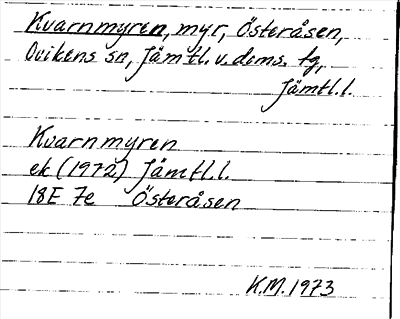 Kvarnmyren, myr, Österåsen,
Ovikens sn, Jämtl. v. doms. tg,
Jämtl. l.
Kvarnmyren
ek (1972) Jämtl. l.
18E 7e Österåsen
K.M. 1973